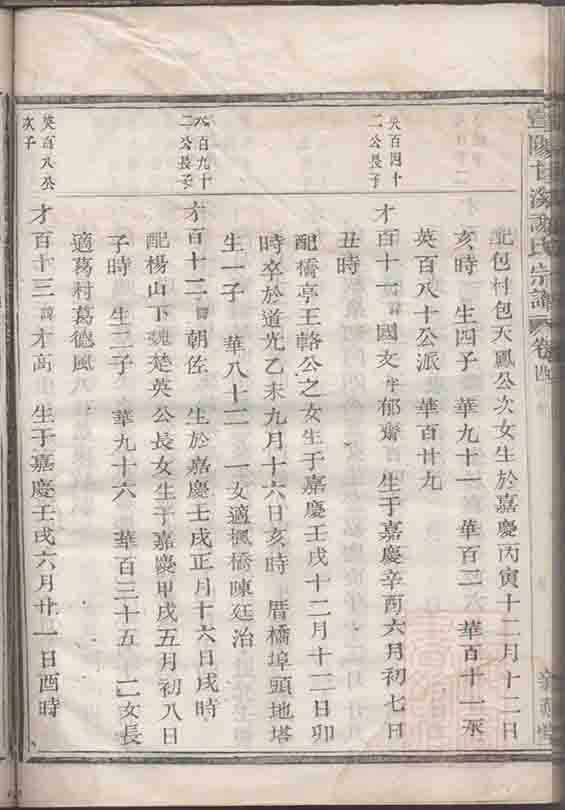 暨陽甘溪謝氏宗譜 卷四
配包村包天鳳公次女生於嘉慶丙寅十二月十二日
亥時 生四子 華九十一 華百二六 華百十一承
英百八十公派 華百廿九
英百四十二公長子
才百十一 諱國文字郁齋 生于嘉慶辛酉六月初七日
丑時
配橋亭王輅公之女生于嘉慶壬戌十二月十二日卯
時卒於道光乙未九月十六日亥時 厝橋埠頭地塔
生一子 華八十三 一女適楓橋陳廷治
二公長子
才百十二 諱朝佐 生於嘉慶壬戌正月十六日戌時
配楊山下魏楚英公長女生于嘉慶甲戌五月初八日
子時 生二子 華九十六 華百三十五 二女長
適葛村葛德風
英百八公次子
才百十三 諱才高 生于嘉慶壬戌六月廿一日酉時